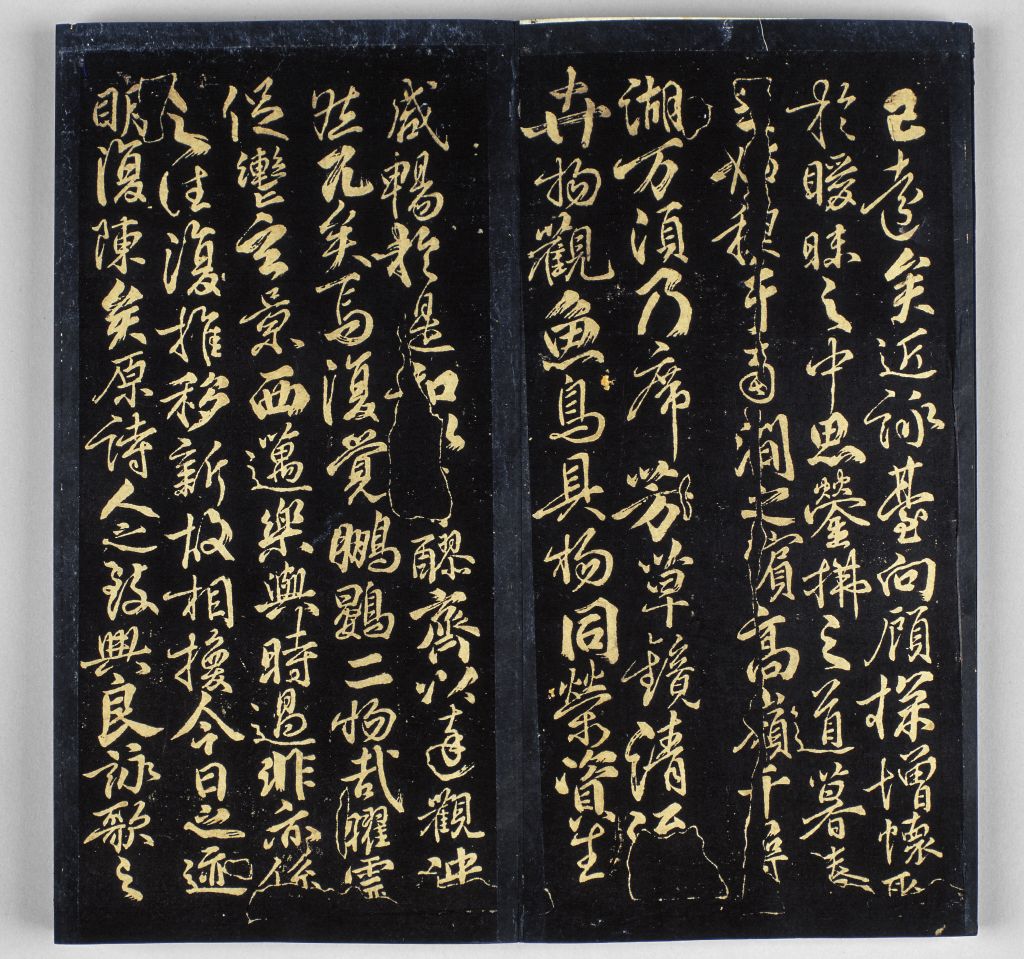 已遠矣近詠臺向顧探增懷
於曖昧之中思縈拂之道暮春
之始禊于南澗之濱高嶺千尋
湖万頃乃席芳草鏡清流
卉物觀魚鳥具物同榮資生
咸暢於是和以醪齊以達觀泱
然兀矣焉復覺鵬鷃二物哉曜靈
促轡玄景西邁樂與時過悲亦係
之往復推移新故相換今日之迹
明復陳矣原詩人之致興良詠歌之